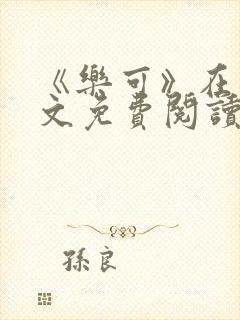 《樂可》在
文免費閱讀
孫良